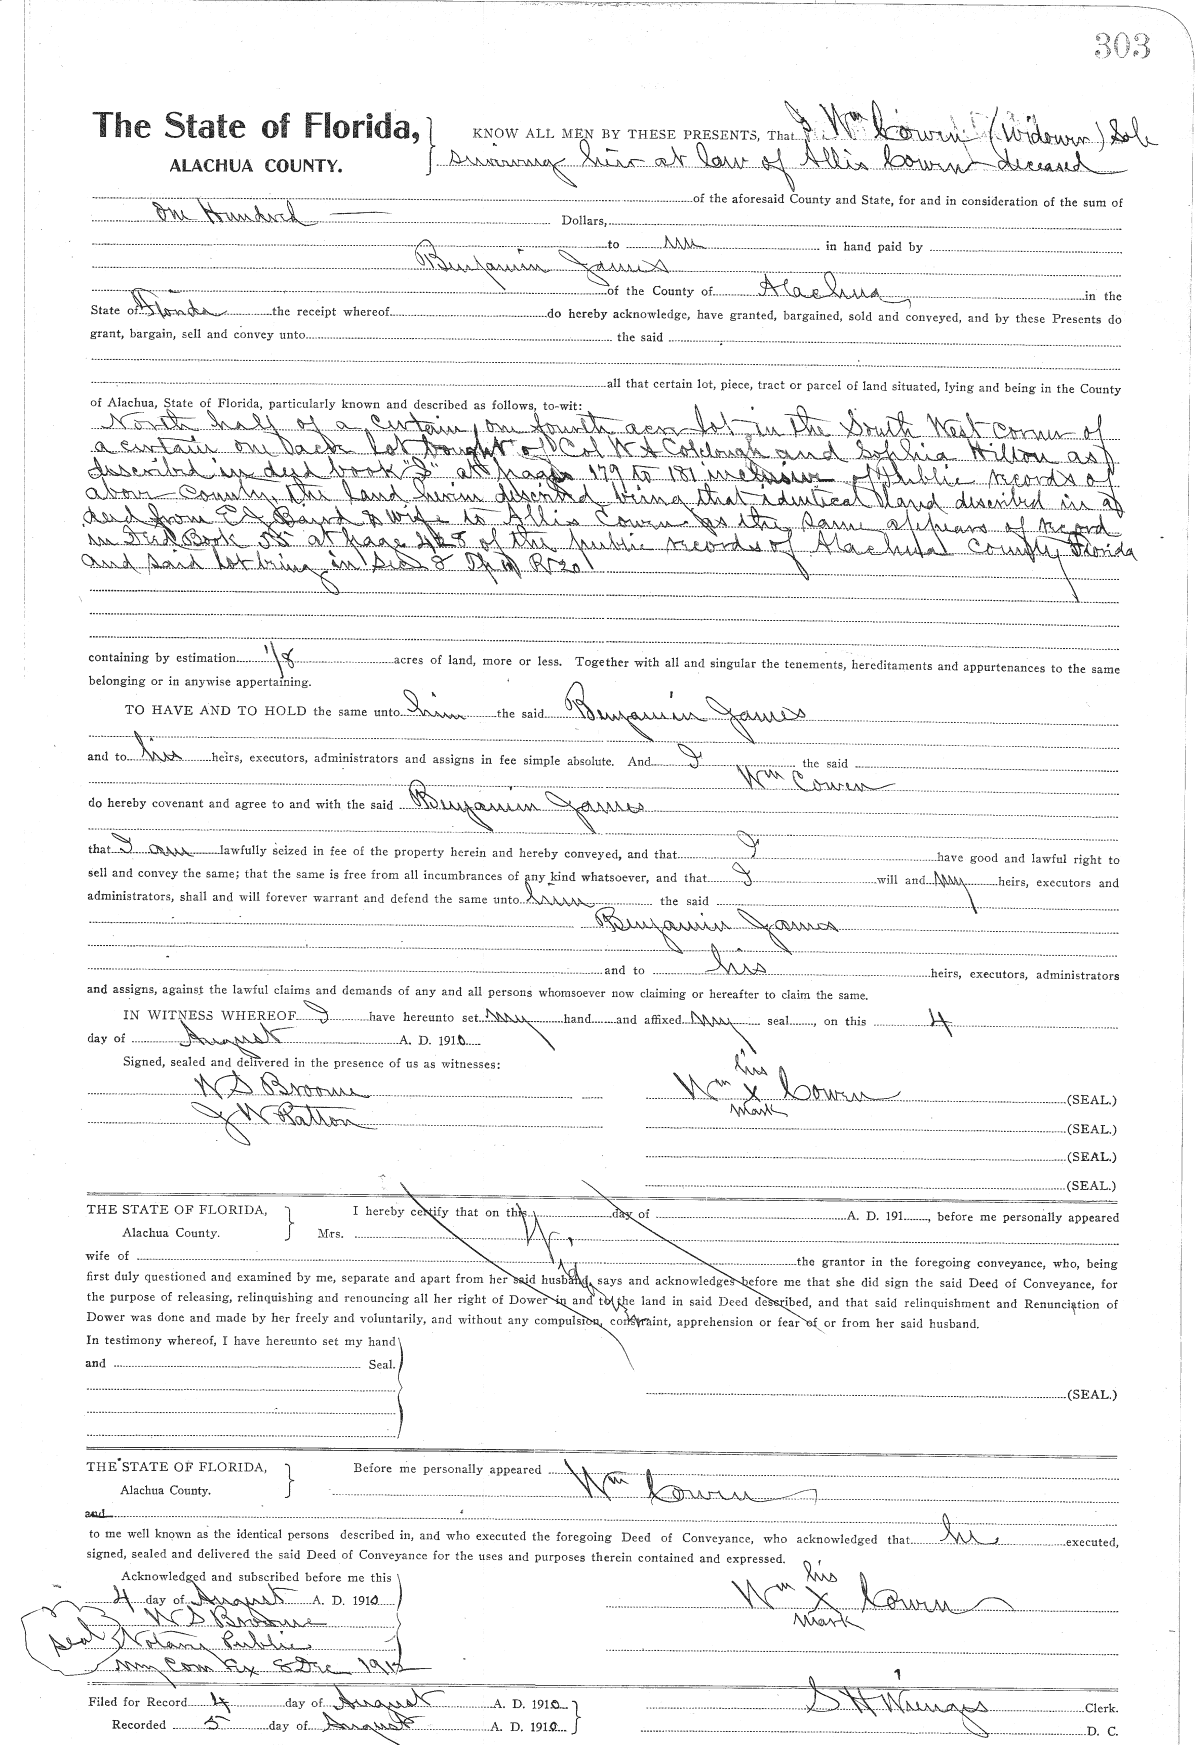 303
The State of Florida,
ALACHUA COUNTY.
KNOW ALL MEN BY THESE PRESENTS, That I Wm Cowen (Widower) Sole
surviving heir at law of Allis Cowen deceased
of the aforesaid County and State, for and in consideration of the sum of
One Hundred Dollars,
to me in hand paid by
Benjamin James
of the County of Alachua in the
State of Florida the receipt whereof do hereby acknowledge, have granted, bargained, sold and conveyed, and by these Presents do
grant, bargain, sell and convey unto the said
all that certain lot, piece, tract or parcel of land situated, lying and being in the County
of Alachua, State of Florida, particularly known and described as follows, to-wit:
North half of a certain one fourth acre lot in the South West corner of
a certain one Jack Lot bought of Col W A Colclough and Sophia Hilton as
described in deed book "S" at pages 179 to 181 inclusive of Public records of
above County. The land herein described being that identical land described in a
deed from E J Baird & wife to Allis Cowen as the same appears of record
in Deed Book 55 at page of the public records of Alachua County Florida
and said lot being in Sec 8 Tp R 20
containing by estimation 1/8 acres of land, more or less. Together with all and singular the tenements, hereditaments and appurtenances to the same
belonging or in anywise appertaining.
TO HAVE AND TO HOLD the same unto him the said Benjamin James
and to his heirs, executors, administrators and assigns in fee simple absolute. And I the said
Wm Cowen
do hereby covenant and agree to and with the said Benjamin James
that I am lawfully seized in fee of the property herein and hereby conveyed, and that I have good and lawful right to
sell and convey the same; that the same is free from all incumbrances of any kind whatsoever, and that I will and my heirs, executors and
administrators, shall and will forever warrant and defend the same unto him the said
Benjamin James
and to his heirs, executors, administrators
and assigns, against the lawful claims and demands of any and all persons whomsoever now claiming or hereafter to claim the same.
IN WITNESS WHEREOF I have hereunto set my hand and affixed my seal, on this 4
day of August A. D. 1910
Signed, sealed and delivered in the presence of us as witnesses:
W S Broome
J W Patton
his
Wm X Cowen (SEAL.)
mark
(SEAL.)
(SEAL.)
(SEAL.)
THE STATE OF FLORIDA,
Alachua County.
I hereby certify that on this day of A. D. 191, before me personally appeared
Mrs.
wife of the grantor in the foregoing conveyance, who, being
first duly questioned and examined by me, separate and apart from her said husband, says and acknowledges before me that she did sign the said Deed of Conveyance, for
the purpose of releasing, relinquishing and renouncing all her right of Dower in and to the land in said Deed described, and that said relinquishment and Renunciation of
Dower was done and made by her freely and voluntarily, and without any compulsion, constraint, apprehension or fear of or from her said husband.
In testimony whereof, I have hereunto set my hand
and Seal.
(SEAL.)
THE STATE OF FLORIDA,
Alachua County.
Before me personally appeared Wm Cowen
and
to me well known as the identical persons described in, and who executed the foregoing Deed of Conveyance, who acknowledged that he executed,
signed, sealed and delivered the said Deed of Conveyance for the uses and purposes therein contained and expressed.
Acknowledged and subscribed before me this
4 day of August A. D. 1910
W S Broome
Seal Notary Public
My Com Ex 8 Dec 1912
his
Wm X Cowen
mark
Filed for Record 4 day of August A. D. 1910
Recorded 5 day of August A. D. 1910
S H Wienges Clerk.
D. C.